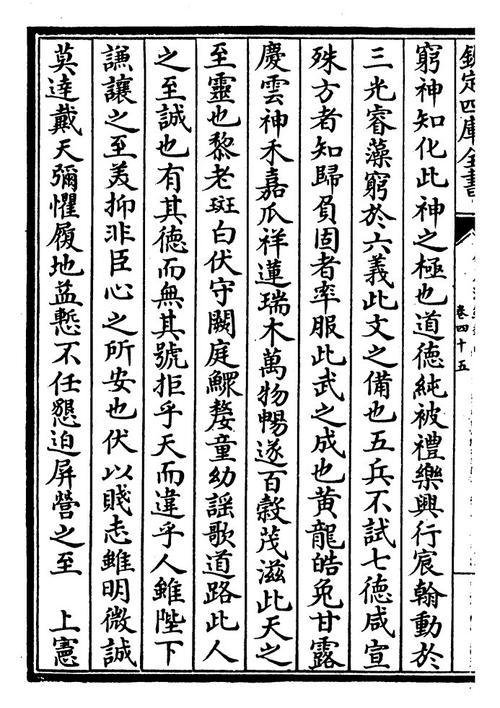 欽定四庫全書
卷四十五
窮神知化此神之極也道德純被禮樂興行宸翰動於
三光睿藻窮於六義此文之備也五兵不試七德咸宣
殊方者知歸負固者率服此武之成也黃龍皓兔甘露
慶雲神禾嘉瓜祥蓮瑞木萬物暢遂百穀茂滋此天之
至靈也黎老斑白伏守闕庭鰥嫠童幼謡歌道路此人
之至誠也有其德而無其號拒乎天而違乎人雖陛下
謙讓之至美抑非臣心之所安也伏以賤志雖明微誠
莫達戴天彌懼履地益慙不任懇迫屏營之至　上憲